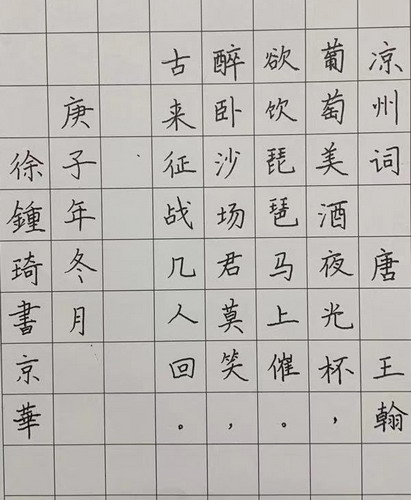 凉州词 唐 王翰
葡萄美酒夜光杯，
欲饮琵琶马上催。
醉卧沙场君莫笑，
古来征战几人回。
庚子年冬月
徐鍾琦書京華